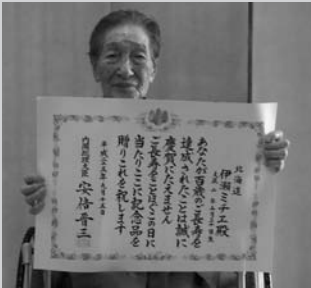 北海道
伊瀬ミチエ殿
あなたが百歳のご長寿を
達成されたことは誠に
慶賀にたえません
ご長寿をことほぐこの日に
当たりここに記念品を
贈りこれを祝します
平成二十五年九月十五日
内閣総理大臣 安倍晋三